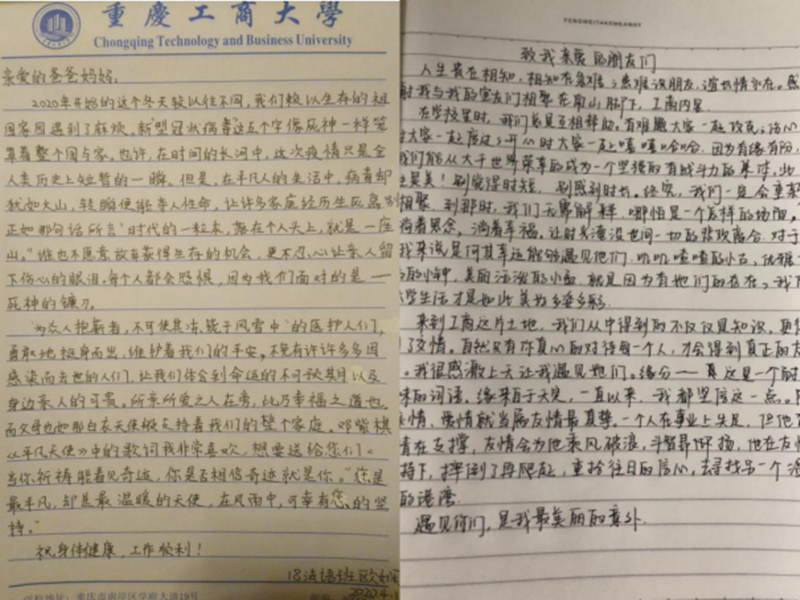 重慶工商大學
Chongqing Technology and Business University
亲爱的爸爸妈妈:
2020年开始的这个冬天较以往不同,我们赖以生存的祖
国家园遇到了麻烦。新型冠状病毒这五个字像死神一样笼
罩着整个国与家。也许,在时间的长河中,这次疫情只是全
人类历史上短暂的一瞬。但是,在平凡人的生活中,病毒却
犹如大山,轻瞬便能夺人性命,让许多家庭经历生死离别
正如那句话所言"时代的一粒灰,落在个人头上,就是一座
山。"谁也不愿意放弃获得生存的机会,更不忍心让亲人留
下伤心的眼泪。每个人都会恐惧,因为我们面对的是——
死神的镰刀。
"为众人抱薪者,不可使其冻毙于风雪中"的医护人们,
勇敢地挺身而出,维护着我们的平安。不免有许许多多因
感染而去世的人们,让我们体会到命运的不可预期以及
身边亲人的可贵。所亲所爱之人在旁,此乃幸福之道也。
而父母也如那白衣天使般支持着我们的整个家庭。邓紫棋
《平凡天使》中的歌词我非常喜欢,想要送给您们《
当你祈祷能看见奇迹,你是否相信奇迹就是你。"您是
最平凡,却是最温暖的天使,在风雨中,可幸有您的坚
持。"
祝身体健康,工作顺利!
18法语班欧
2020.4.
学校地址:重庆市南岸区学府大道19号
致我亲爱的朋友们
人生贵在相知,相知在急难;患难识朋友,道切情亦在。感
我与我的室友们相聚在南山脚下,工商内里。
在学校里时,我们总是互相帮助。有难题大家一起攻克;伤心
大家一起度过;开心时大家一起嘻嘻哈哈。因为有缘有份,
我们能从大千世界荣幸的成为一个坚强的有战斗力的集体,此
是美!别觉得时短,别感到时长。终究,我们一定会重新
相聚,到那时,我们无需解释,哪怕是一个怎样的场面。
着思念,淌着幸福。让时光淹没世间一切的悲欢离合。对于
我来说是何其幸运能够遇见他们。叽叽喳喳的小石,优雅
的小钟,美丽活泼的小孟,就是因为有她们的存在,我
大学生活才是如此美为多姿多彩。
来到工商这片土地,我们从中得到的不仅仅是知识,更
了友情。自然只有你真心的对待每一个人,才会得到真正的友
。我很感激上天让我遇见她们。缘分——真这是一个
的词语。缘来自于天使,一直以来,我都坚信这一点。
情,爱情就当属友情最真挚。一个人在事业上失足,但他
在支撑,友情会为他乘风破浪,斗智昂扬,他在友
持下,摔倒了再爬起,重拾往日的信心,去寻找另一个
的港湾。
遇见你们,是我最美丽的意外。